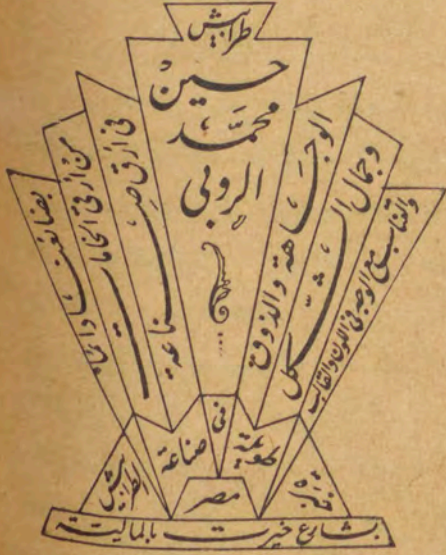 طرابيش
حسين
محمد
الروبى
الوجاهة والذوق
وجمال الشكل
والتناسب مع الوجه فى اللون والقالب
فى أرق صناعة
من أرقى الخامات
بضائعنا دائما
خبرة
طويلة
فى
صناعة
الطرابيش
مصر
بشارع خيرت بالمالية